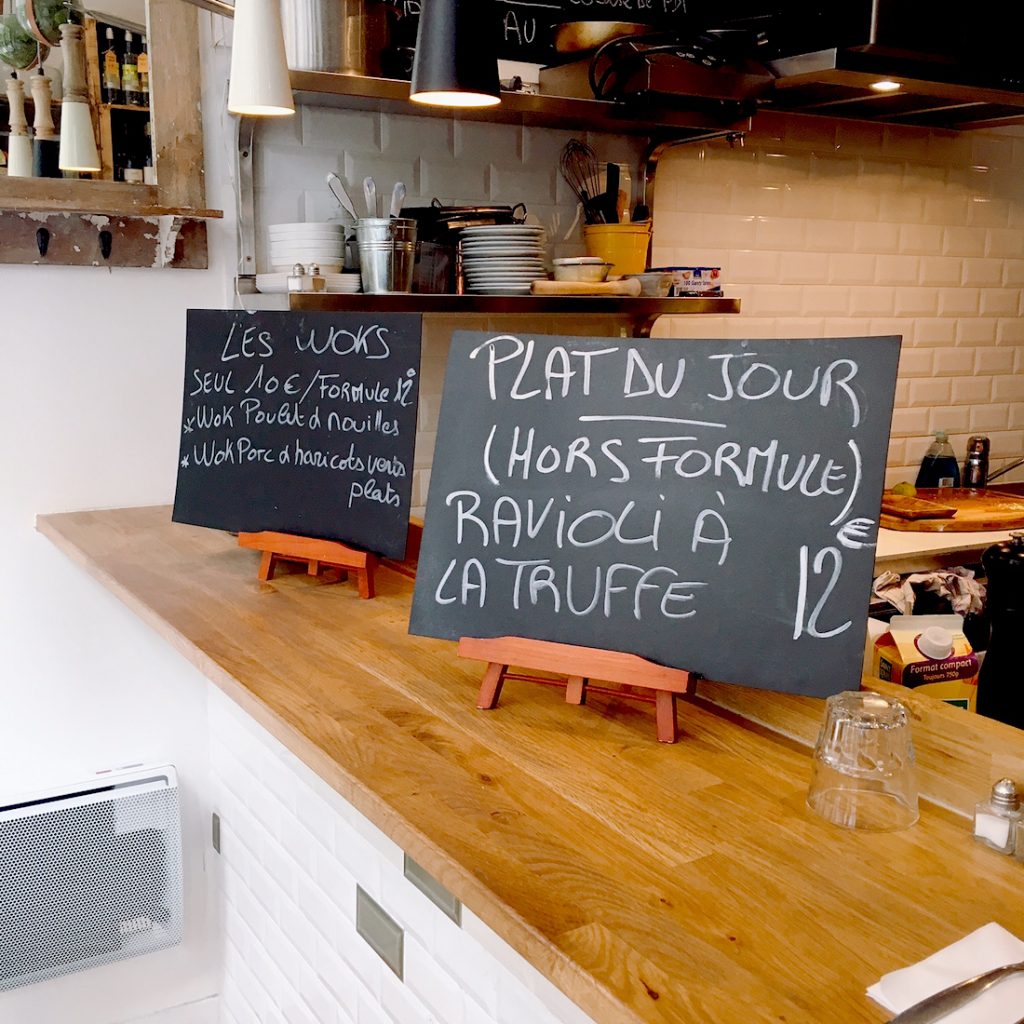 AU
LES WOKS
SEUL 10€/FORMULE 12
*WOK Poulet d nouilles
*WOK Porc d haricots verts
plats
PLAT DU JOUR
(HORS FORMULE)
RAVIOLI À
LA TRUFFE
12 €
Format compact
Toujours 750g